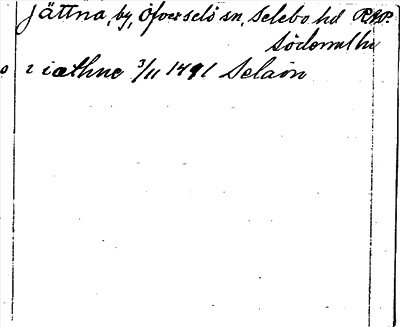 Jättna, by, Öfverselö sn, Selebo hd RAP.
Söderml. län
i iæthne 3/11 1491 Selaön